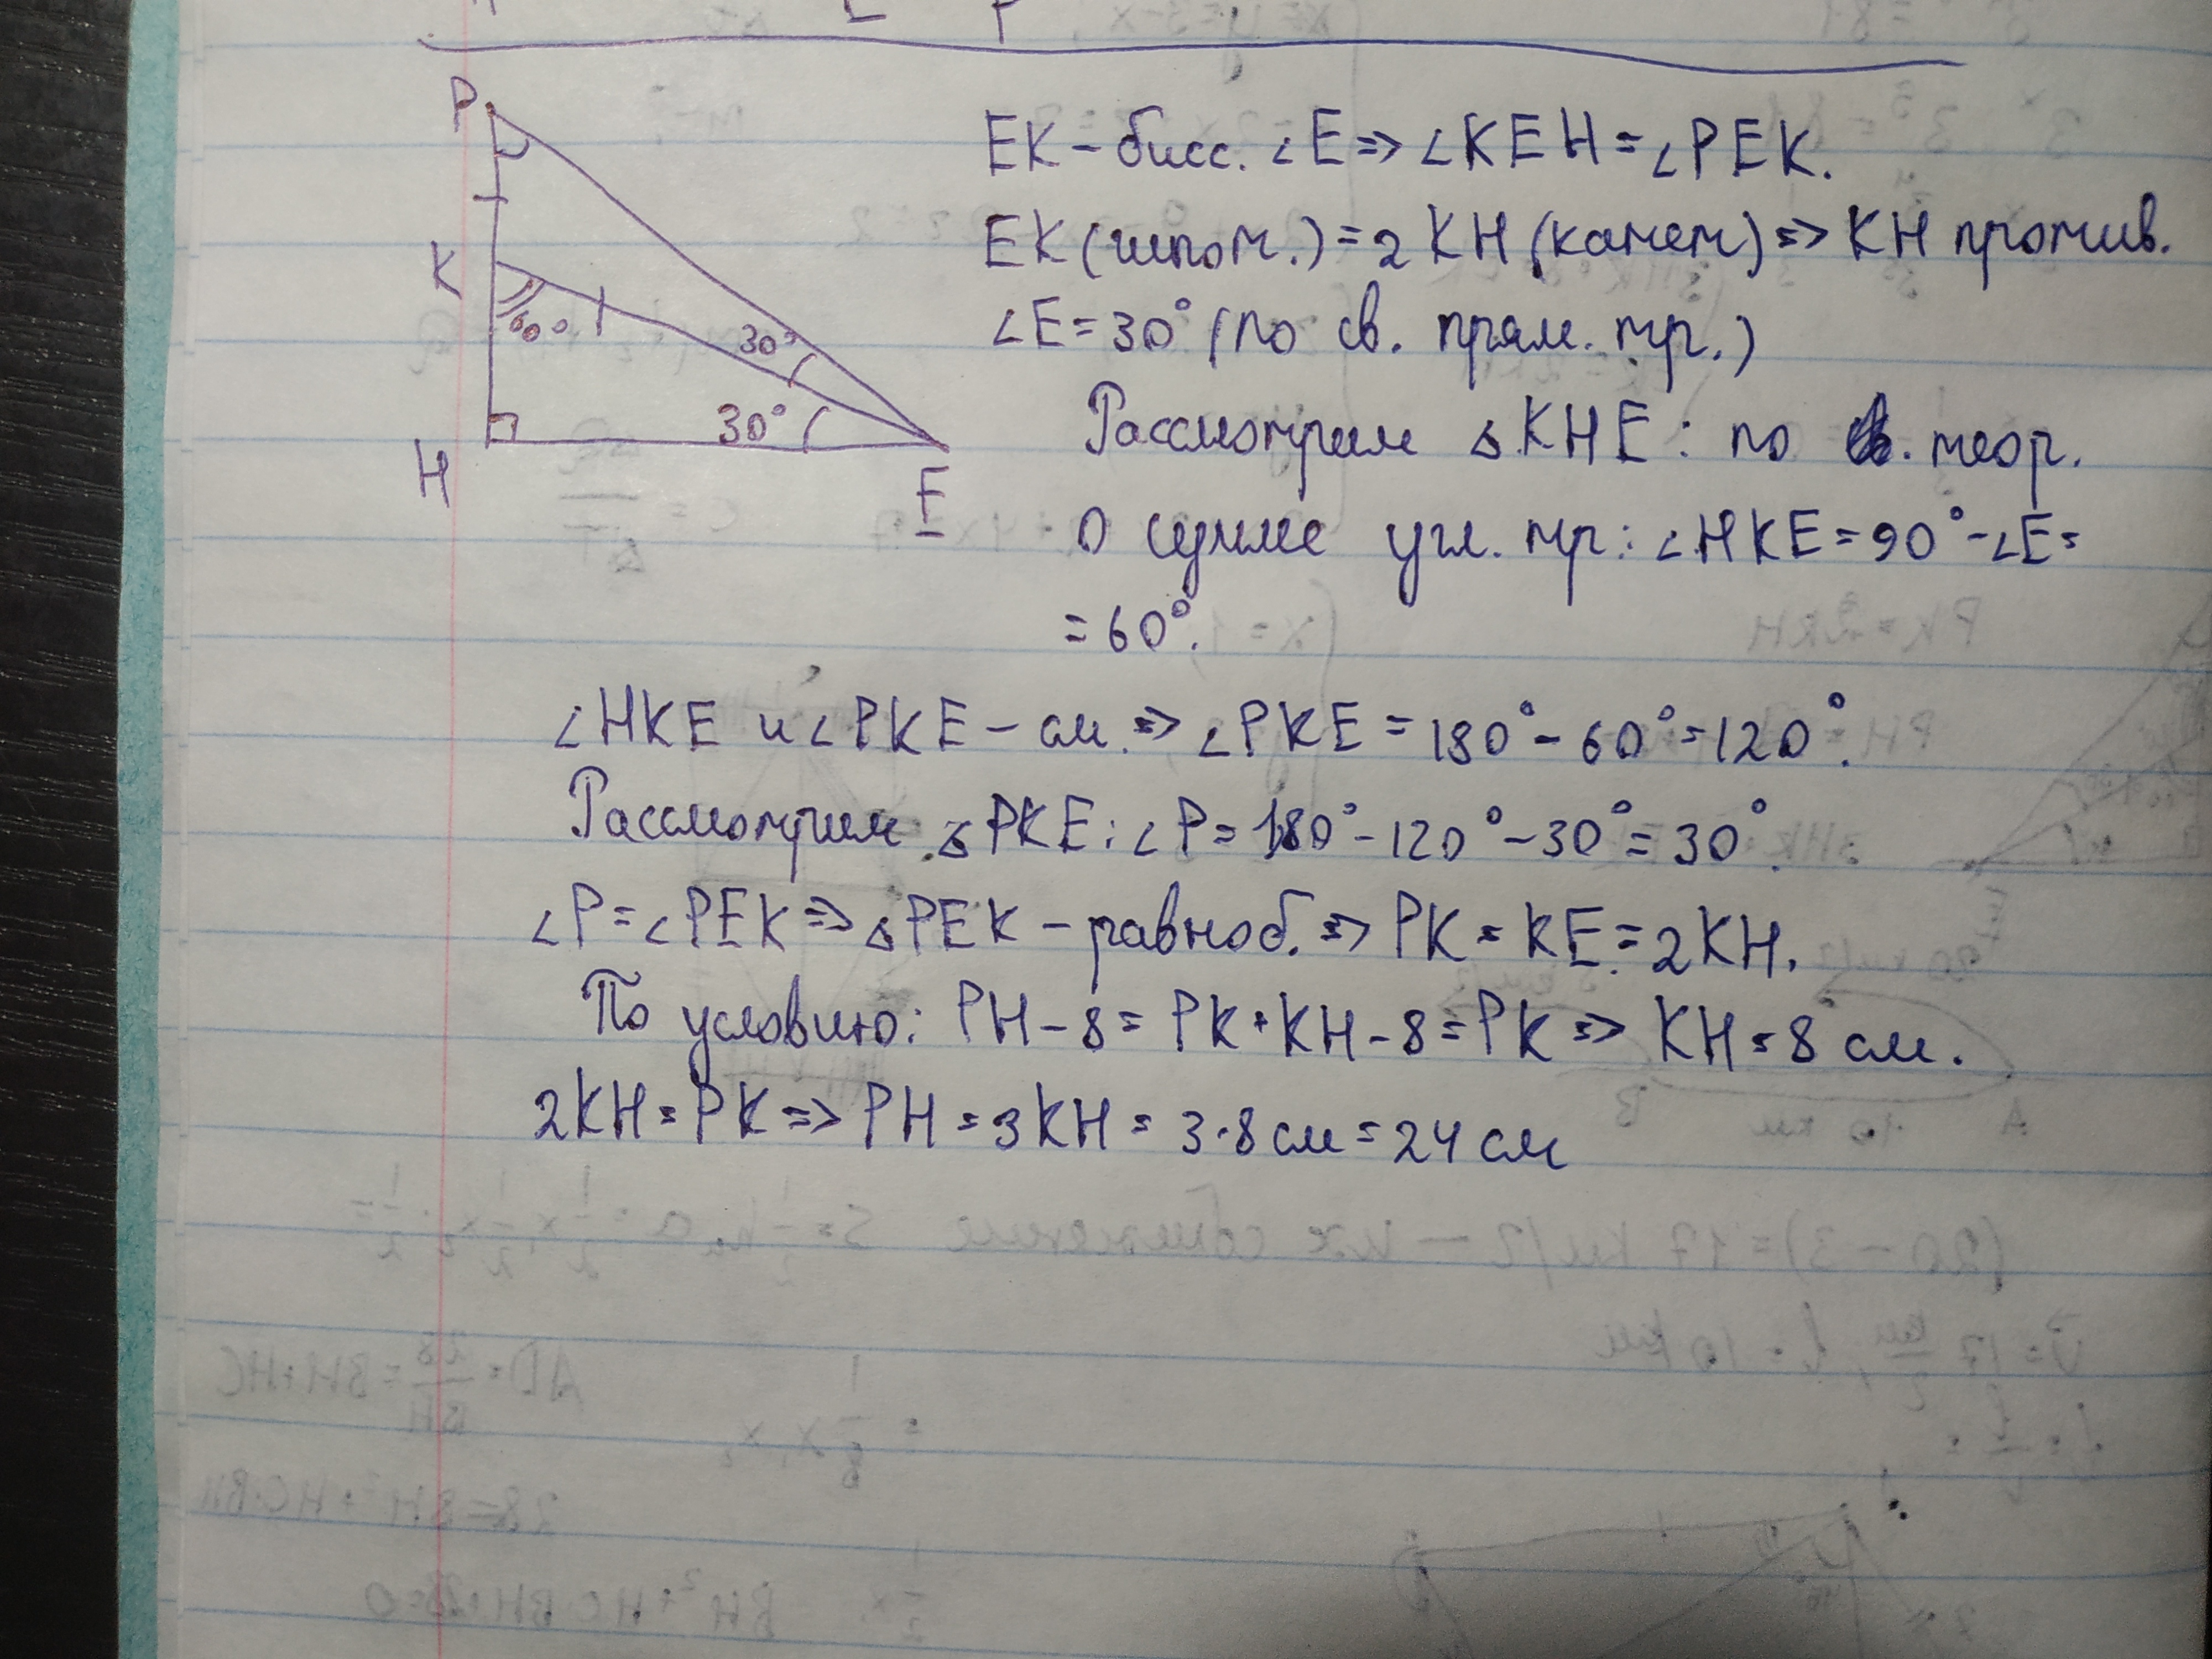 P
K
60°
30°
30°
H
E
EK - бисс. ∠E => ∠KEH = ∠PEK.
EK (гипот.) = 2 KH (катет) => KH против.
∠E = 30° (по св. прям. тр.)
Рассмотрим ▵ KHE: по теор.
о сумме угл. тр: ∠HKE = 90° - ∠E =
= 60°.
∠HKE и ∠PKE - см. => ∠PKE = 180° - 60° = 120°.
Рассмотрим ▵PKE: ∠P = 180° - 120° - 30° = 30°.
∠P = ∠PEK => ▵PEK - равноб. => PK = KE = 2KH.
По условию: PH - 8 = PK + KH - 8 = PK => KH = 8 см.
2KH = PK => PH = 3KH = 3·8 см = 24 см